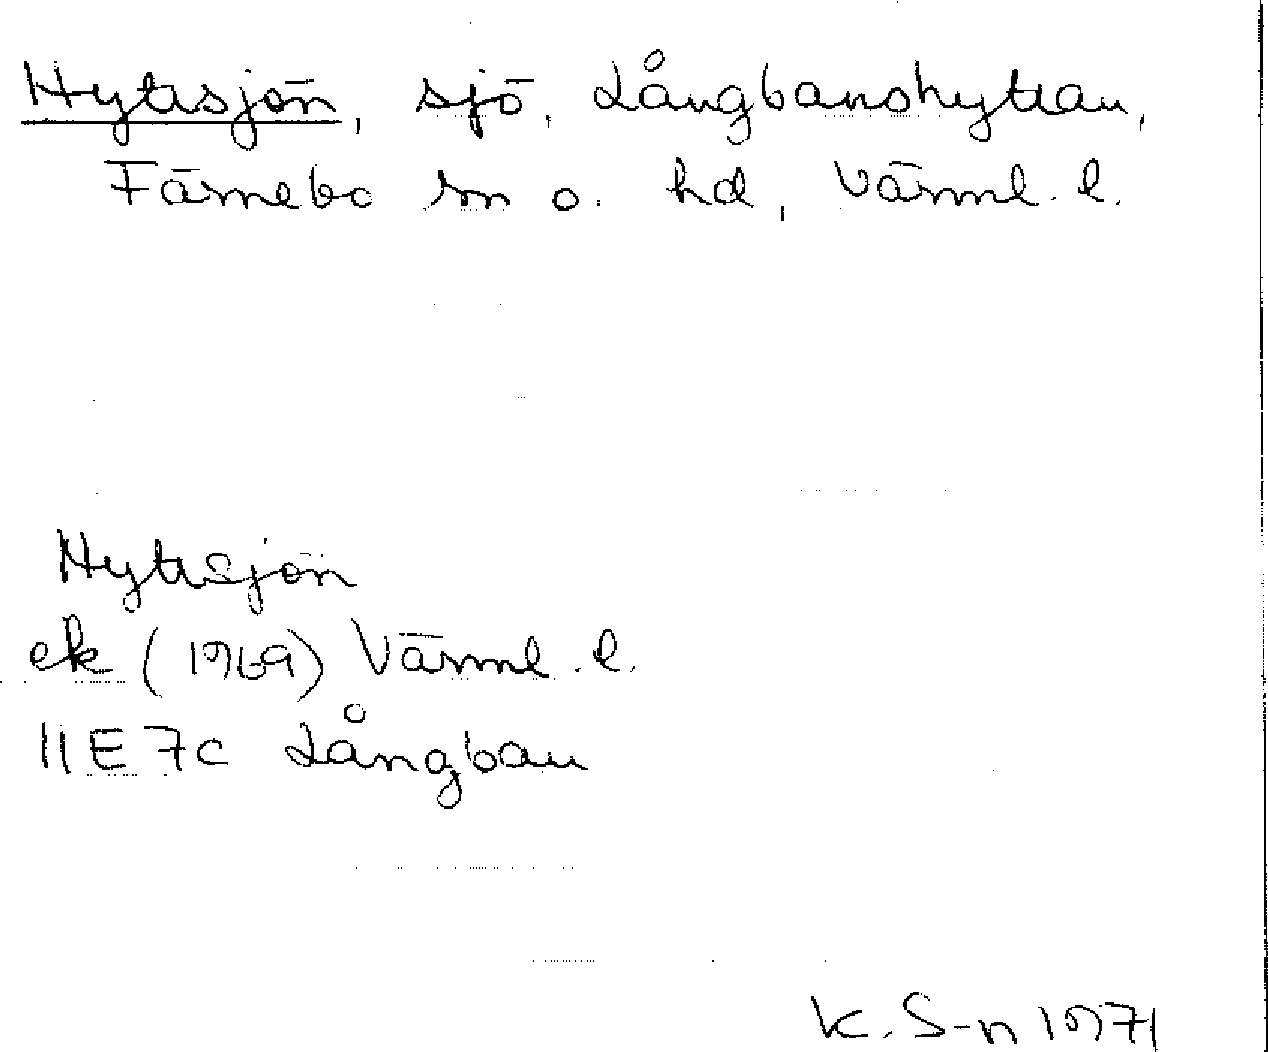 Hyttsjön, sjö, Långbanshyttan,
Färnebo sn o. hd, Värml. l.
Hyttsjön
ek (1969) Värml. l.
11E 7c Långban
K. S-n 1971